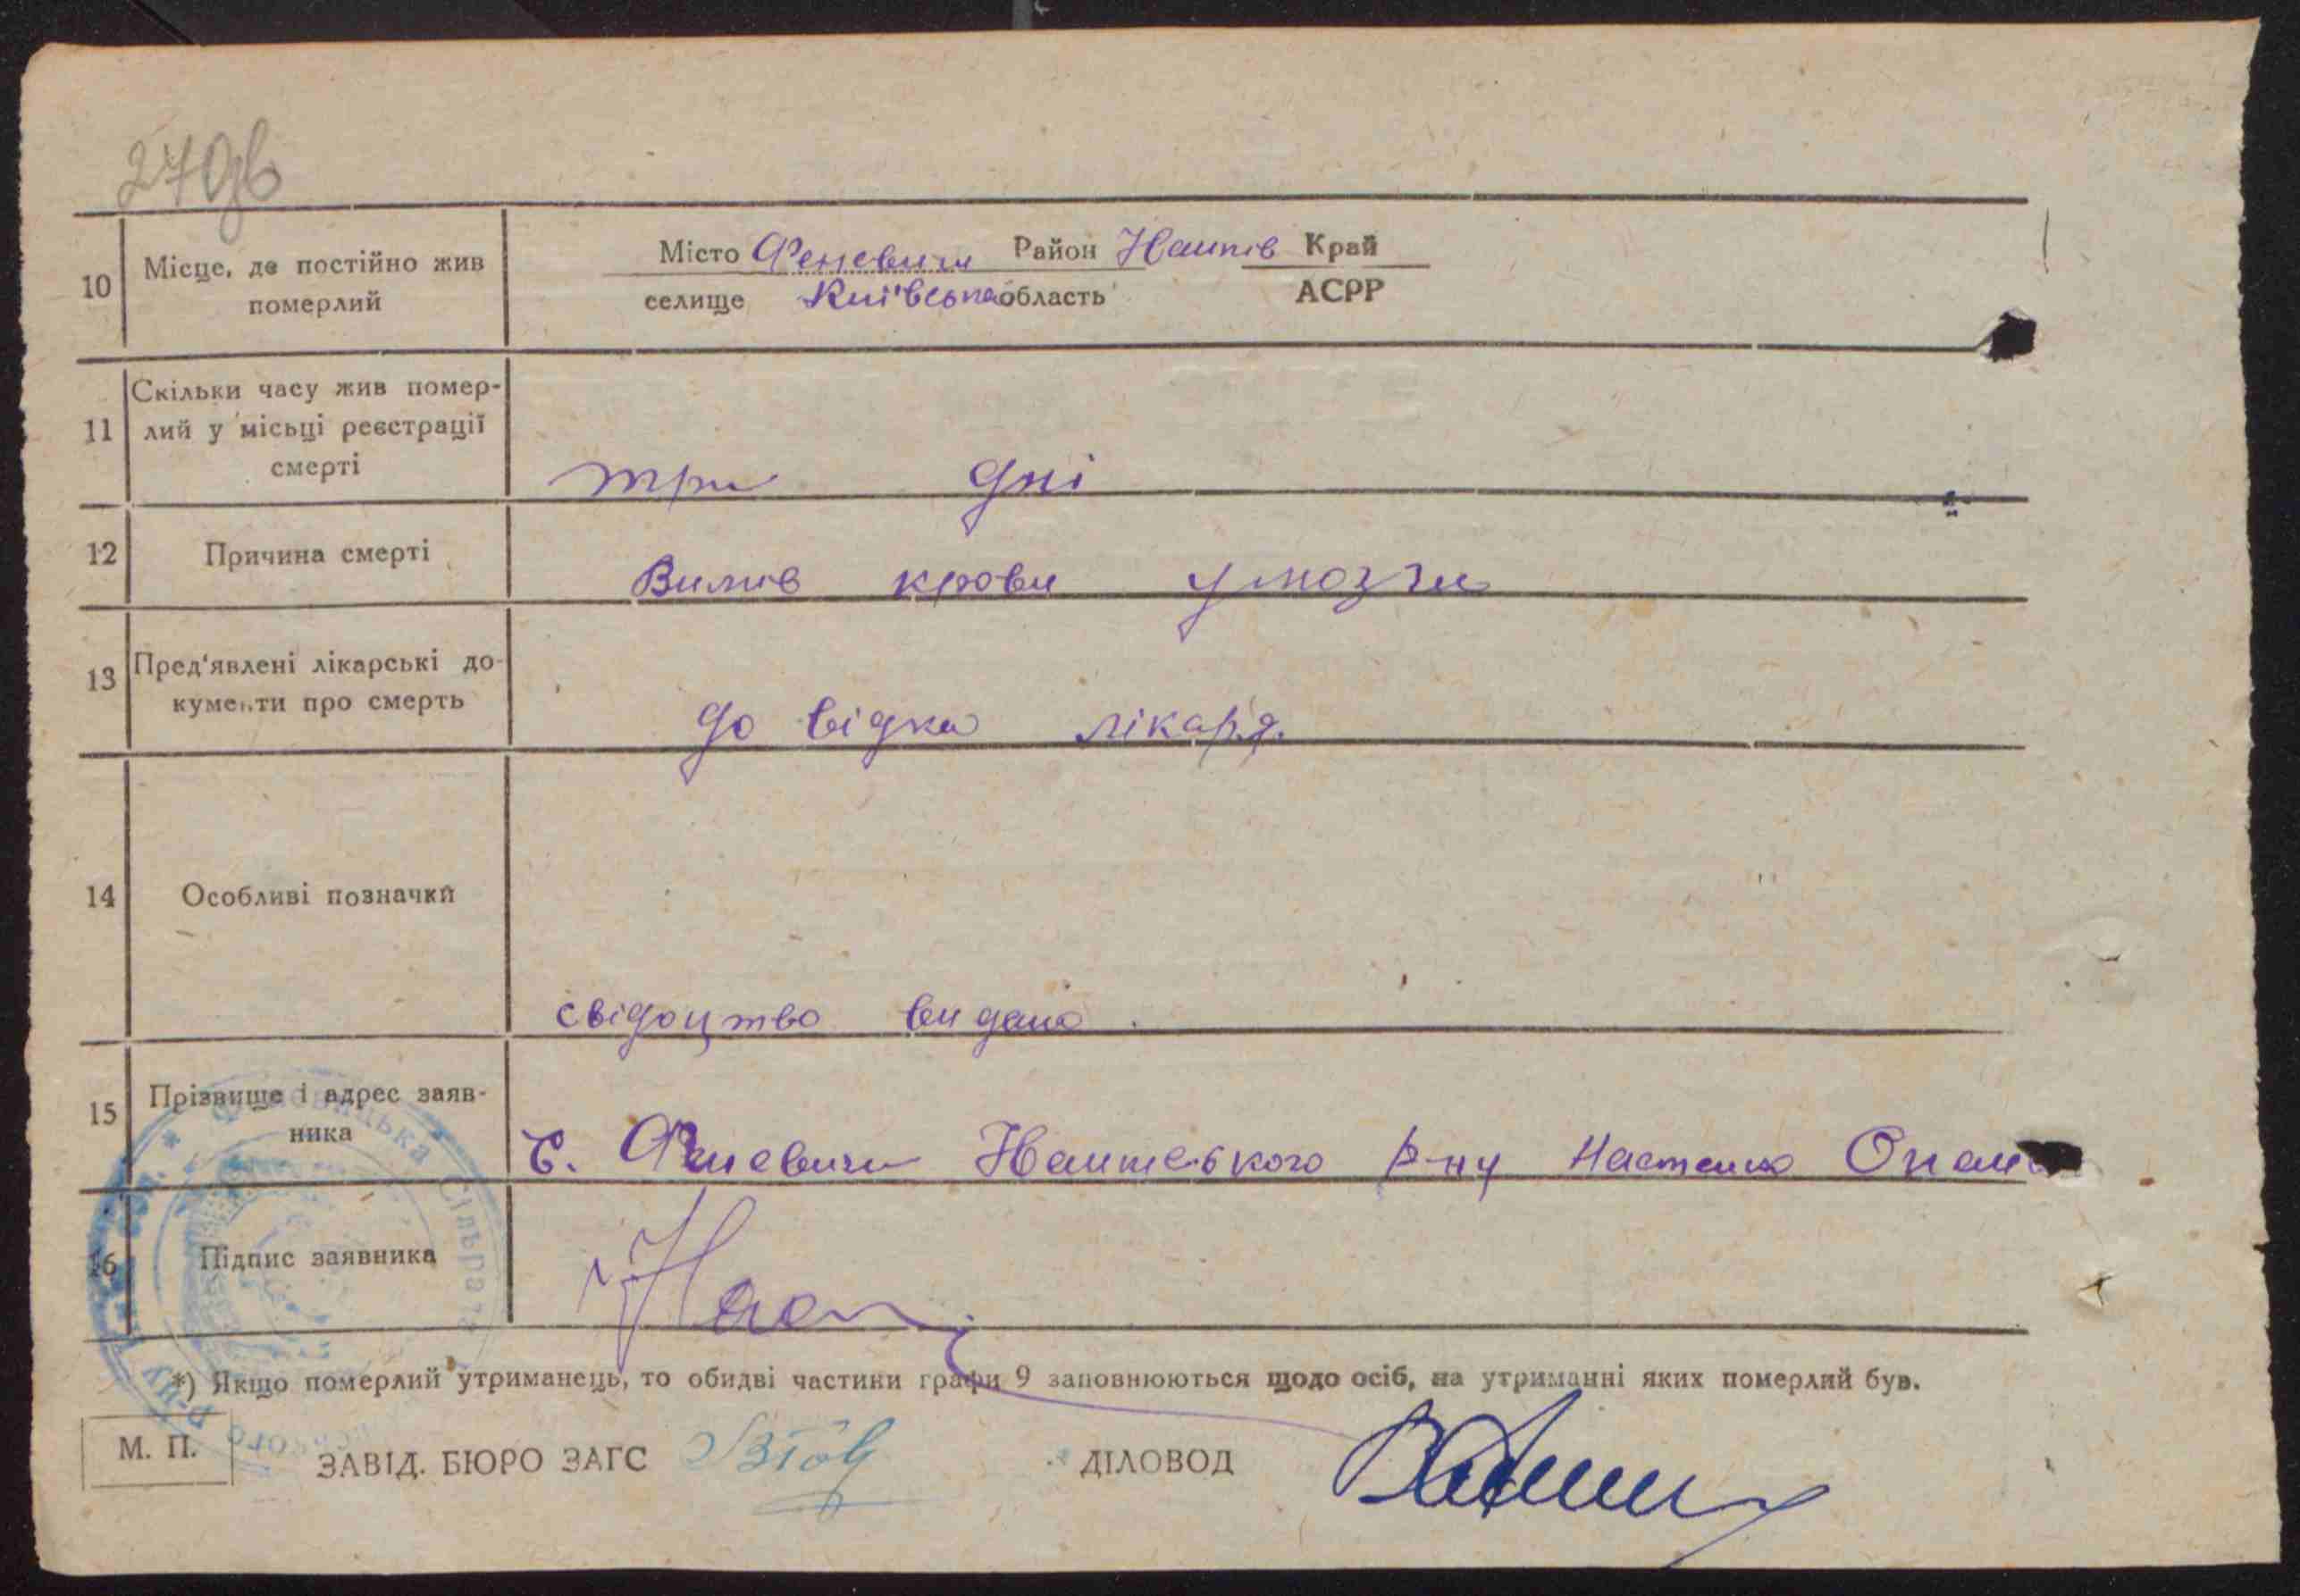 27 зв
10 Місце, де постійно жив померлий
Місто Феневичи Район Іванків Край
селище Київська область АСРР
11 Скільки часу жив помер-
лий у місьці реєстрації
смерті
три дні
12 Причина смерті Вилив крови у мозги
13 Пред'явлені лікарські до-
кументи про смерть
до відка лікаря.
14 Особливі позначки
свідоцтво видано.
15 Прізвище і адрес заяв-
ника
С. Феневичи Іванківського р-ну Настенко Опан
16 Підпис заявника Нас
*) Якщо померлий утриманець, то обидві частини графи 9 заповнюються щодо осіб, на утриманні яких померлий був.
М. П. ЗАВІД. БЮРО ЗАГС ДІЛОВОД